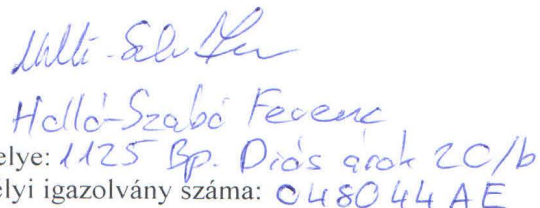 Holló-Szabó Ferenc
elye: 1125 Bp. Diós árok 2C/b
élyi igazolvány száma: 048044 AE